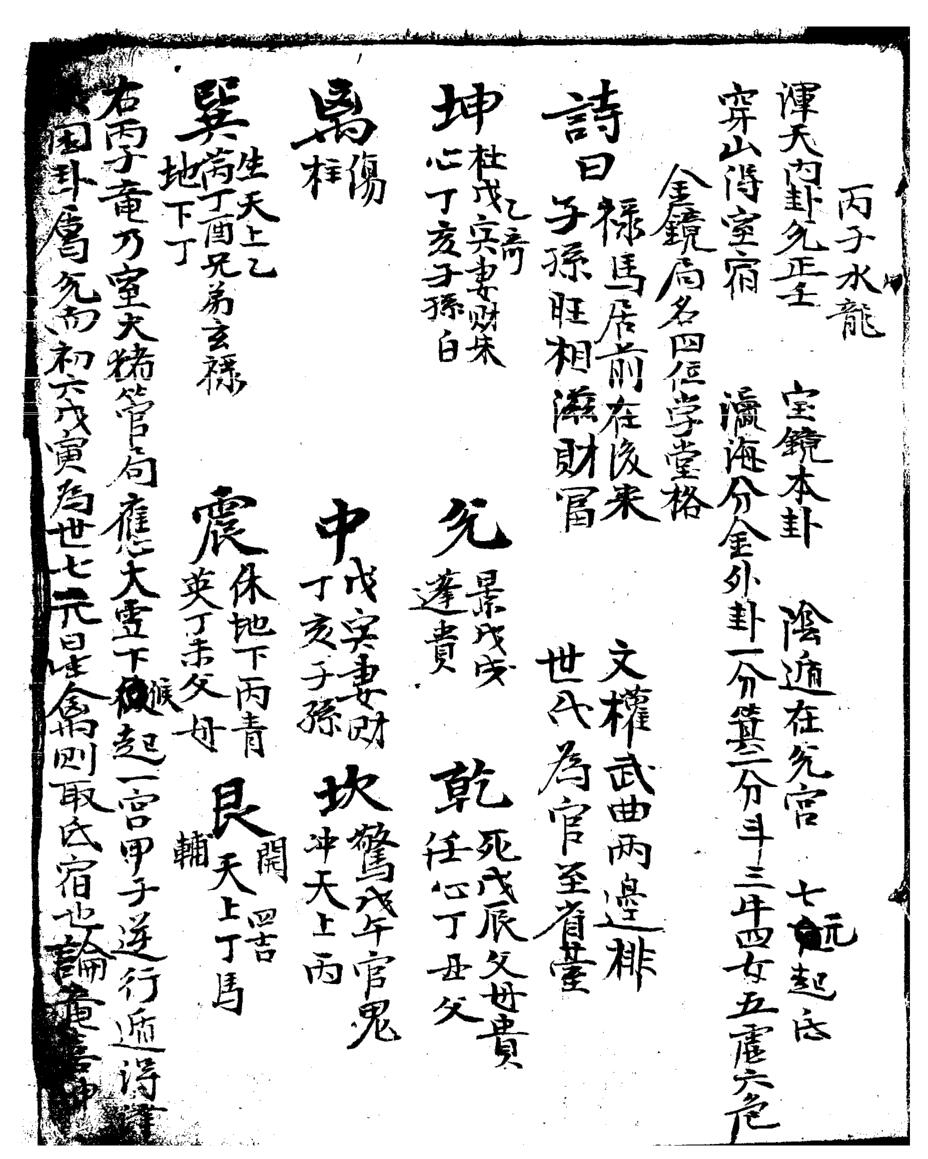 丙子水龍
渾天内卦兊正壬　宝鏡本卦　陰遁在兊宮　七元起氐
穿山得室宿　瀛海分金外卦一分箕二分斗三牛四女五虚六危
金鏡局名四位学堂格
詩曰
祿馬居前在後来　文權武曲兩邊排
子孫旺相滋財冨　世代為官至省臺
坤
杜戊寅妻財朱
乙奇
心丁亥子孫白
兊
景戊戌
蓬貴
乾
死戊辰父母貴
任心丁丑父
离
傷
柱
中
戊寅妻財
丁亥子孫
坎
驚戊午官鬼
冲天上丙
巽
生天上乙
芮丁酉兄弟玄祿
地下丁
震
休地下丙青
英丁未父母
艮
開　四吉
天上丁馬
輔
右丙子竜乃室火猪管局應大雪下候起一宮甲子逆行遁得
困卦屬兊而初六戊寅為世七元日禽則取氐宿也論竜喜